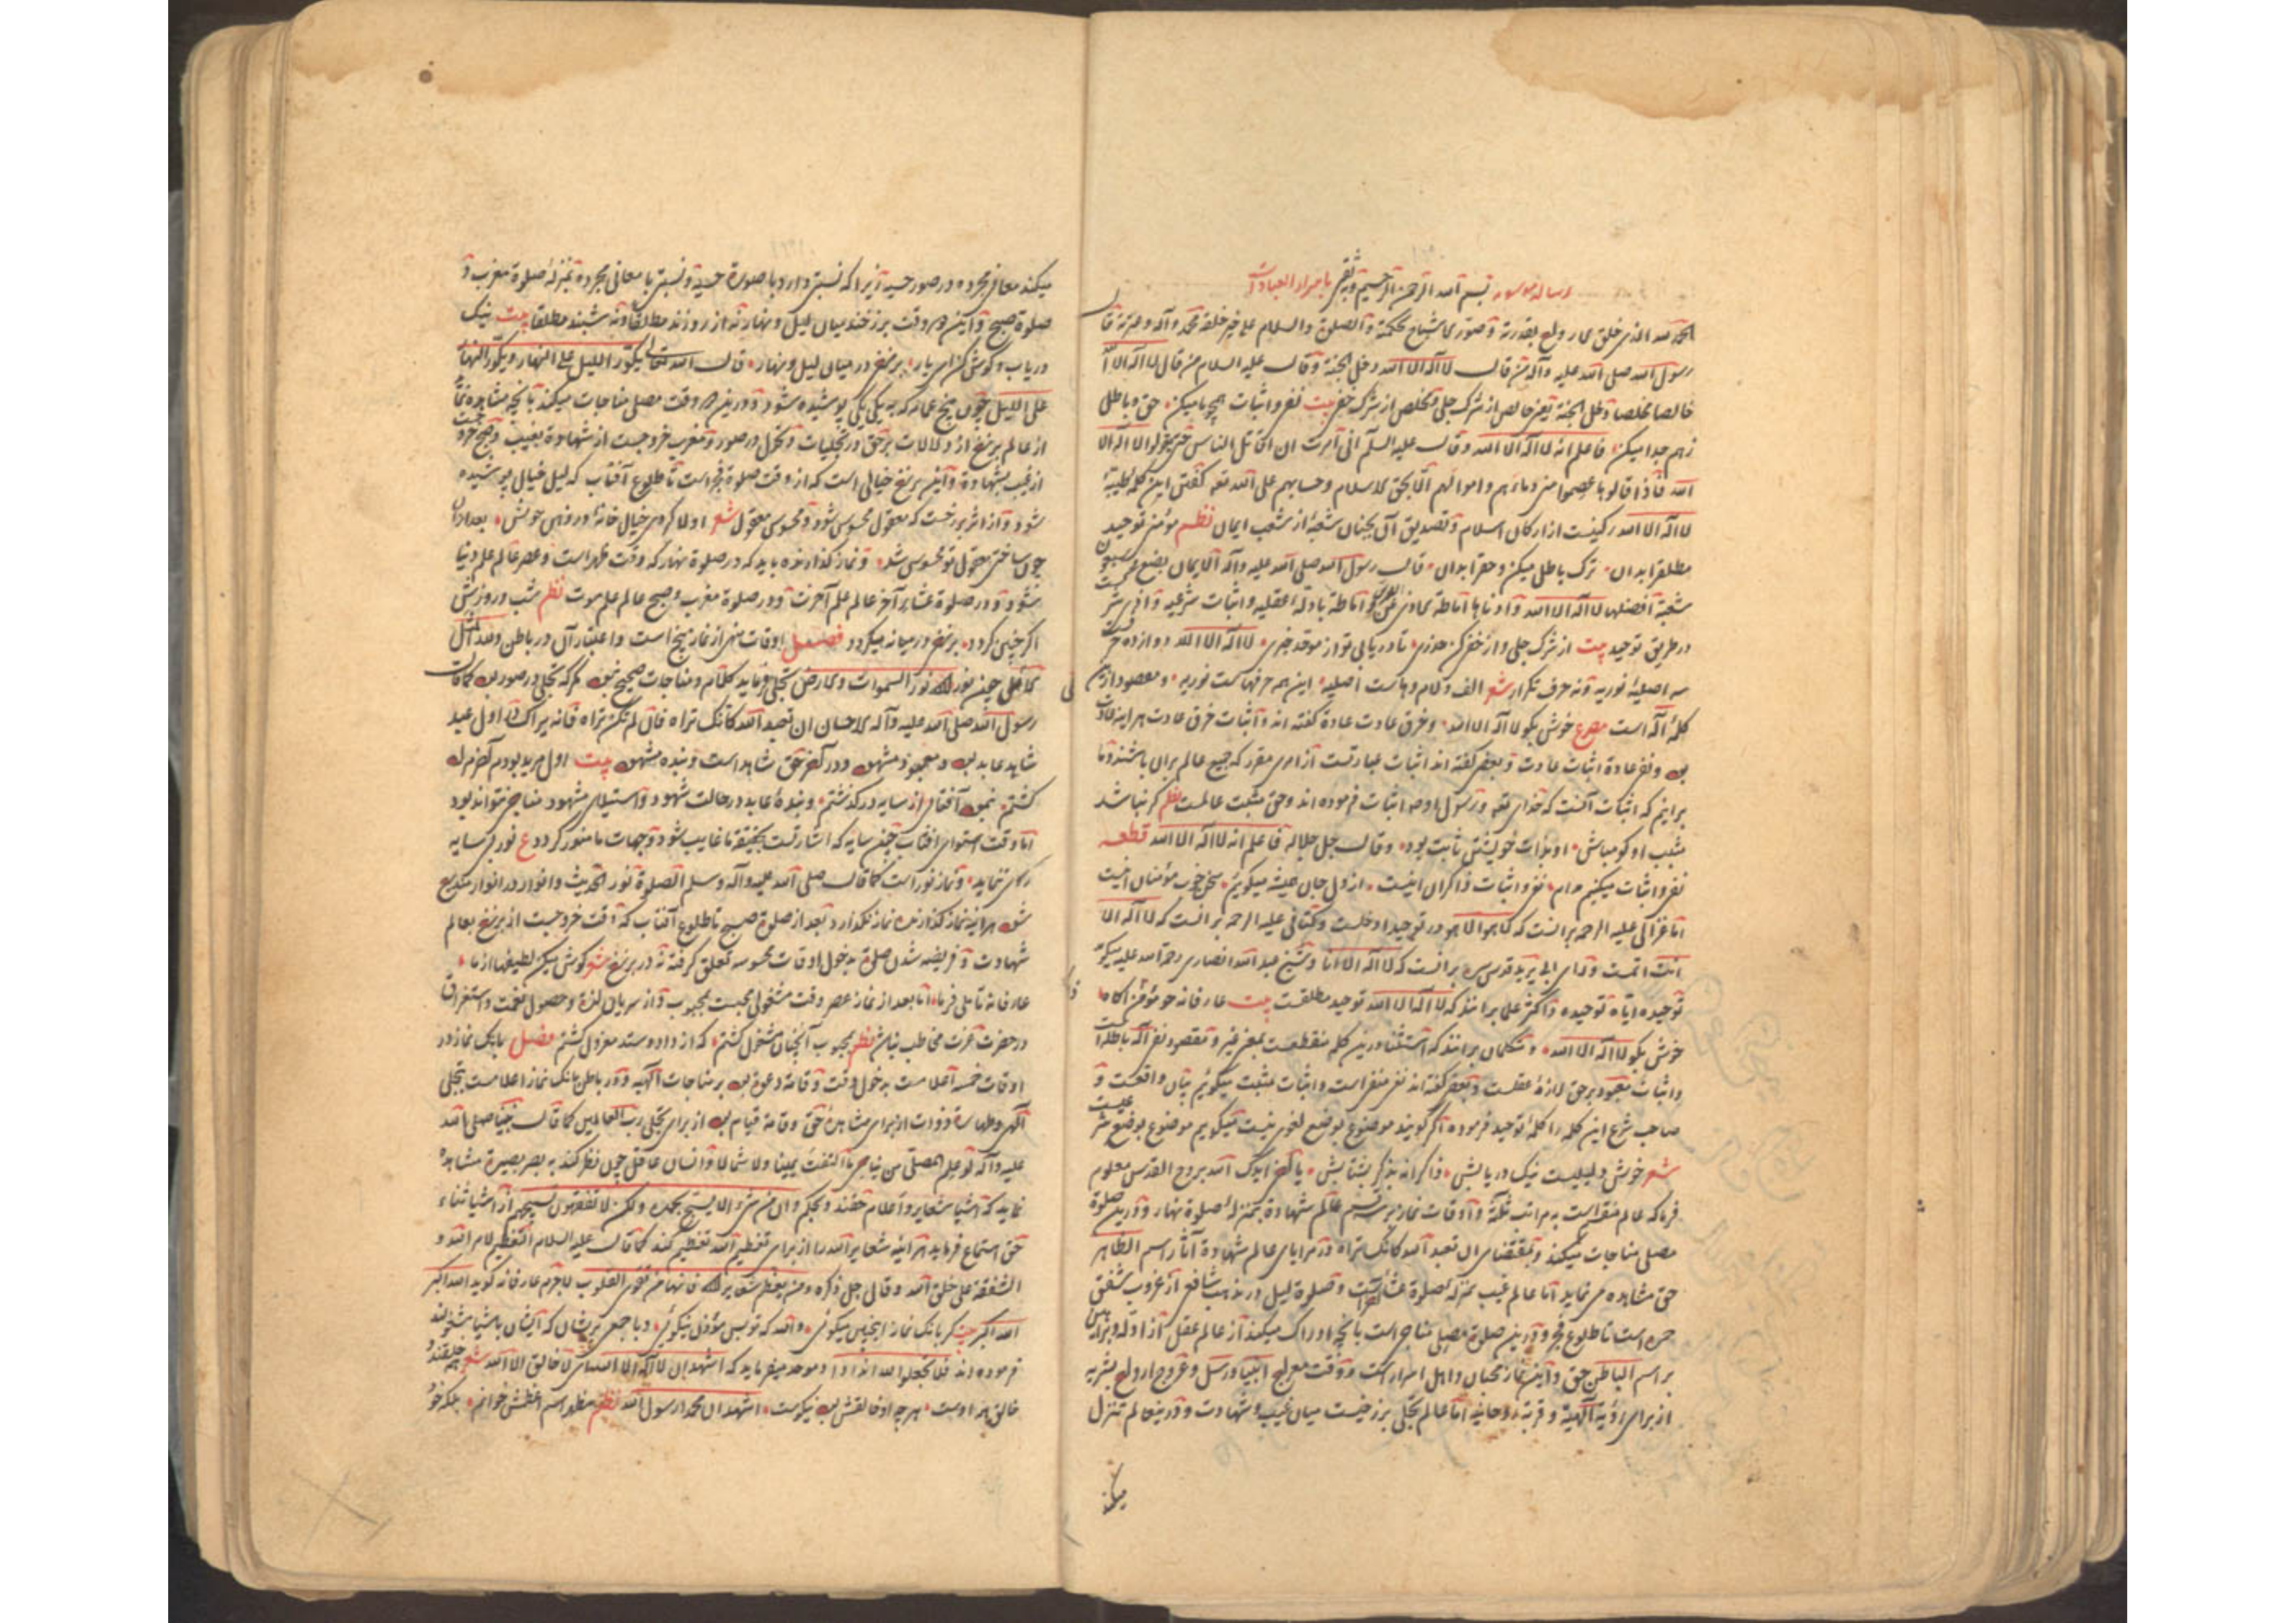 رساله موسومه بسم الله الرحمن الرحیم وبه ثقتی باسرار العبادات
الحمد لله الذی خلق الارواح بقدرته وصور الاشباح بحکمته والصلوة والسلام علی خیر خلقه محمد وآله وعترته قال
رسول الله صلی الله علیه وآله من قال لا اله الا الله دخل الجنة وقال علیه السلام من قال لا اله الا الله
خالصا مخلصا دخل الجنة یعنی خالص از شرک جلی ومخلص از شرک خفی بیت نفی واثبات همچو ما میکن حق وباطل
زهم جدا میکن فاعلم انه لا اله الا الله وقال علیه السلم انی امرت ان اقاتل الناس حتی یقولوا لا اله الا
الله فاذا قالوها عصموا منی دماءهم واموالهم الا بحق الاسلام وحسابهم علی الله تعه گفتن این کلمه طیبه
لا اله الا الله رکنیست از ارکان اسلام وتصدیق آن بجنان شعبهٔ از شعب ایمان نظم مؤمنی توحید
مطلق ابدان ترک باطل میکن وحق را بدان قال رسول الله صلی الله علیه وآله الایمان بضع وسبعون
شعبة افضلها لا اله الا الله وادناها اماطة الاذی عن الطریق واماطة بادلهٔ عقلیه واثبات شرعیه
در طریق توحید بیت از شرک جلی واز خفی کن حذری تا دریابی تو از موحد خبری لا اله الا الله دوازده حرفست
سه اصلیهٔ نوریه ونه حرف تکرار شعر الف ولام وهاست اصلیه این همه حرفهاست نوریه ومقصود ازین
کلمهٔ آله است مصرع خوش بگو لا اله الا الله وخرق عادت عادة گفته اند واثبات خرق عادت
بود ونفی عادة اثبات عادت وبعضی گفته اند اثبات عبارتست از امری مقرر که جمیع عالم بران باشند وما
برانیم که اثبات آنست که خدای تعه ورسول او اثبات فرموده اند وحق مثبت عالمست نظم گر نباشد
مثبت او گو مباش او بذات خویشتن ثابت بود وقال جل جلاله فاعلم انه لا اله الا الله قطعه
نفی واثبات میکنیم مدام نفی واثبات ذاکران اینست از دل وجان همیشه میگویم سخن خوب مؤمنان اینست
اما غزالی علیه الرحمه برانست که لا هو الا هو در توحید ادخلست وکتانی علیه الرحمه برانست که لا اله الا
انت اتمست ورای ابی یزید قدس سره برانست که لا اله الا انا وشیخ عبد الله انصاری رحمة الله علیه میگوید
توحیده ایاه توحیده واکثر علما برانند که لا اله الا الله توحید مطلقست بیت عارفانه موحد آگاه
خوش بگو لا اله الا الله ومتکلمان برانند که استثنا درین کلمه منقطعست بمعنی غیر ومقصود نفی آلهٔ باطله است
واثبات معبود برحق وبعضی گفته اند نفی منفی است واثبات مثبت میگوئیم بیان واقعست و
صاحب شرع این کلمه را کلمهٔ توحید فرموده اگر گویند موضوع بوضع لغوی نیست میگوییم موضوع بوضع شرعیست
شعر خوش دلیلیست نیک دریابش ذاکرانه بذکر بشتابش یا اخی ایدک الله بروح القدس معلوم
فرما که عالم منقسم است به مراتب ثلثه واوقات نماز برین عالم شهادة بمنزلهٔ صلوة نهار ودرین صلوة
مصلی مناجات میکند وبمقتضای ان تعبد الله کانک تراه در مرایای عالم شهادة آثار اسم الظاهر
حق مشاهده می نماید اما عالم غیب بمنزلهٔ صلوة عشاست وصلوة لیل در مذهب شافعی از غروب شفق
حمره است تا طلوع فجر ودرین صلوة مصلی مناجی است بانچه ادراک میکند از عالم عقل از ادله وبراهین
بر اسم الباطن حق واین نماز محبان واهل اسرارست ووقت معراج انبیا ورسل وعروج ارواح بشریه
از برای رؤیة آلهیة وقربة روحانیه اما عالم تجلی برزخیست میان غیب وشهادت ودرین عالم تنزل
میکند
میکند معانی مجرده در صور حسیه زیرا که نسبتی دارد با صورة حسیة ونسبتی با معانی مجرده بمنزلهٔ صلوة مغرب و
صلوة صبح واین دو وقت برزخند میان لیل ونهار نه از روزند مطلقا ونه شبند مطلقا بیت نیک
دریاب وگوش کن ای یار برزخی در میان لیل ونهار قال الله تعالی یکور اللیل علی النهار ویکور النهار
علی اللیل چون پیچ عمامه که به یکی یکی پوشیده شود ودرین دو وقت مصلی مناجات میکند بانچه مشاهده نماید
از عالم برزخ از دلالات بر حق در تجلیات وتحول در صور ومغرب خروجست از شهادة بغیب وصبح خروجست
از غیب بشهادة واین برزخ خیالی است که از وقت صلوة فجر است تا طلوع آفتاب که لیل خیالی پوشیده
شود واز اثر برزخست که معقول محسوس شود ومحسوس معقول شعر اولا کردی خیال خانهٔ در ذهن خویش بعد از ان
چون ساختی معقول تو محسوس شد ونماز گذارنده باید که در صلوة نهار که وقت ظهر است وعصر عالم علم دنیا
شود ودر صلوة عشاء آخر عالم علم آخرت ودر صلوة مغرب وصبح عالم علم موت نظم شب وروزش
اگر چنین گردد برزخی در میانه میگردد فصل اوقات منهی از نماز پنج است واعتبار آن در باطن ولله المثل
الاعلی حین نور الله نور السموات والارض تجلی فرماید کلام ومناجات صحیح نبود مگر که تجلی در صور بود کما قال
رسول الله صلی الله علیه وآله الاحسان ان تعبد الله کانک تراه فان لم تکن تراه فانه یراک در اول عبد
شاهد عابد بود ومعبود مشهود ودر آخر حق شاهد است وبنده مشهود بیت اول مرید بودم آخر مراد
گشتم نمود آفتابی از سایه درگذشتم وبندهٔ عابد در حالت شهود واستیلای مشهود مناجی نتواند بود
اما وقت استوای آفتاب چنین سایه که اشارتست بحقیقة ما غایب شود وجهات ما منور گردد ع نور بر سایه
ونماز نور است کما قال صلی الله علیه وآله وسلم الصلوة نور الحدیث وانوار در انوار مندرج
شود هراینه نماز گذارنده نماز نگذارد وبعد از صلوة صبح تا طلوع آفتاب که وقت خروجست از برزخ بعالم
شهادت وفریضه شدن صلوة بدخول اوقات محسوسه تعلق گرفته نه در برزخ شعر گوش میکن لطیفها از ما
عارفانه تأملی فرما اما بعد از نماز عصر وقت مشغولی محبست بمحبوب واز سریان لذة وحصول نعمت واستغراق
در حضرت عزت مخاطب نباش نظم بمحبوب آنچنان مشغول گشتم که از داد وستد معزول گشتم فصل بانگ نماز در
اوقات خمسه اعلامست بدخول وقت واقامه دعوة بود بر مناجات آلهیه ودر باطن بانگ نماز اعلامست بتجلی
آلهی وطهارة ذوات از برای مشاهدهٔ حق واقامة قیام بود از برای تجلی رب العالمین کما قال نبینا صلی الله
علیه وآله لو علم المصلی من یناجی ما التفت یمینا ولا شمالا وانسان عاقل چون نظر کند به بصر بصیرة مشاهده
نماید که اشیا شعایر واعلام حقند وبحکم وان من شیء الا یسبح بحمده ولکن لا تفقهون تسبیحهم از اشیا ثناء
حق استماع فرماید هراینه شعایر الله را از برای تعظیم الله تعظیم کند کما قال علیه السلام التعظیم لامر الله و
الشفقة علی خلق الله وقال جل ذکره ومن یعظم شعایر الله فانها من تقوی القلوب لاجرم عارفانه گوید الله اکبر
الله اکبر بیت گر بانگ نماز اینچنین میگوئی والله که تو بس مؤذن نیکوئی وبا جمعی که ایشان باشیا مشغولند
فرموده اند فلا تجعلوا لله اندادا وموحد میفرماید که اشهد ان لا اله الا الله ای لا خالق الا الله شعر همه خلقند و
خالق همه اوست هر چه او خالقش بود نیکوست اشهد ان محمدا رسول الله نظم مظهر اسم اعظمش خوانم بلکه خود